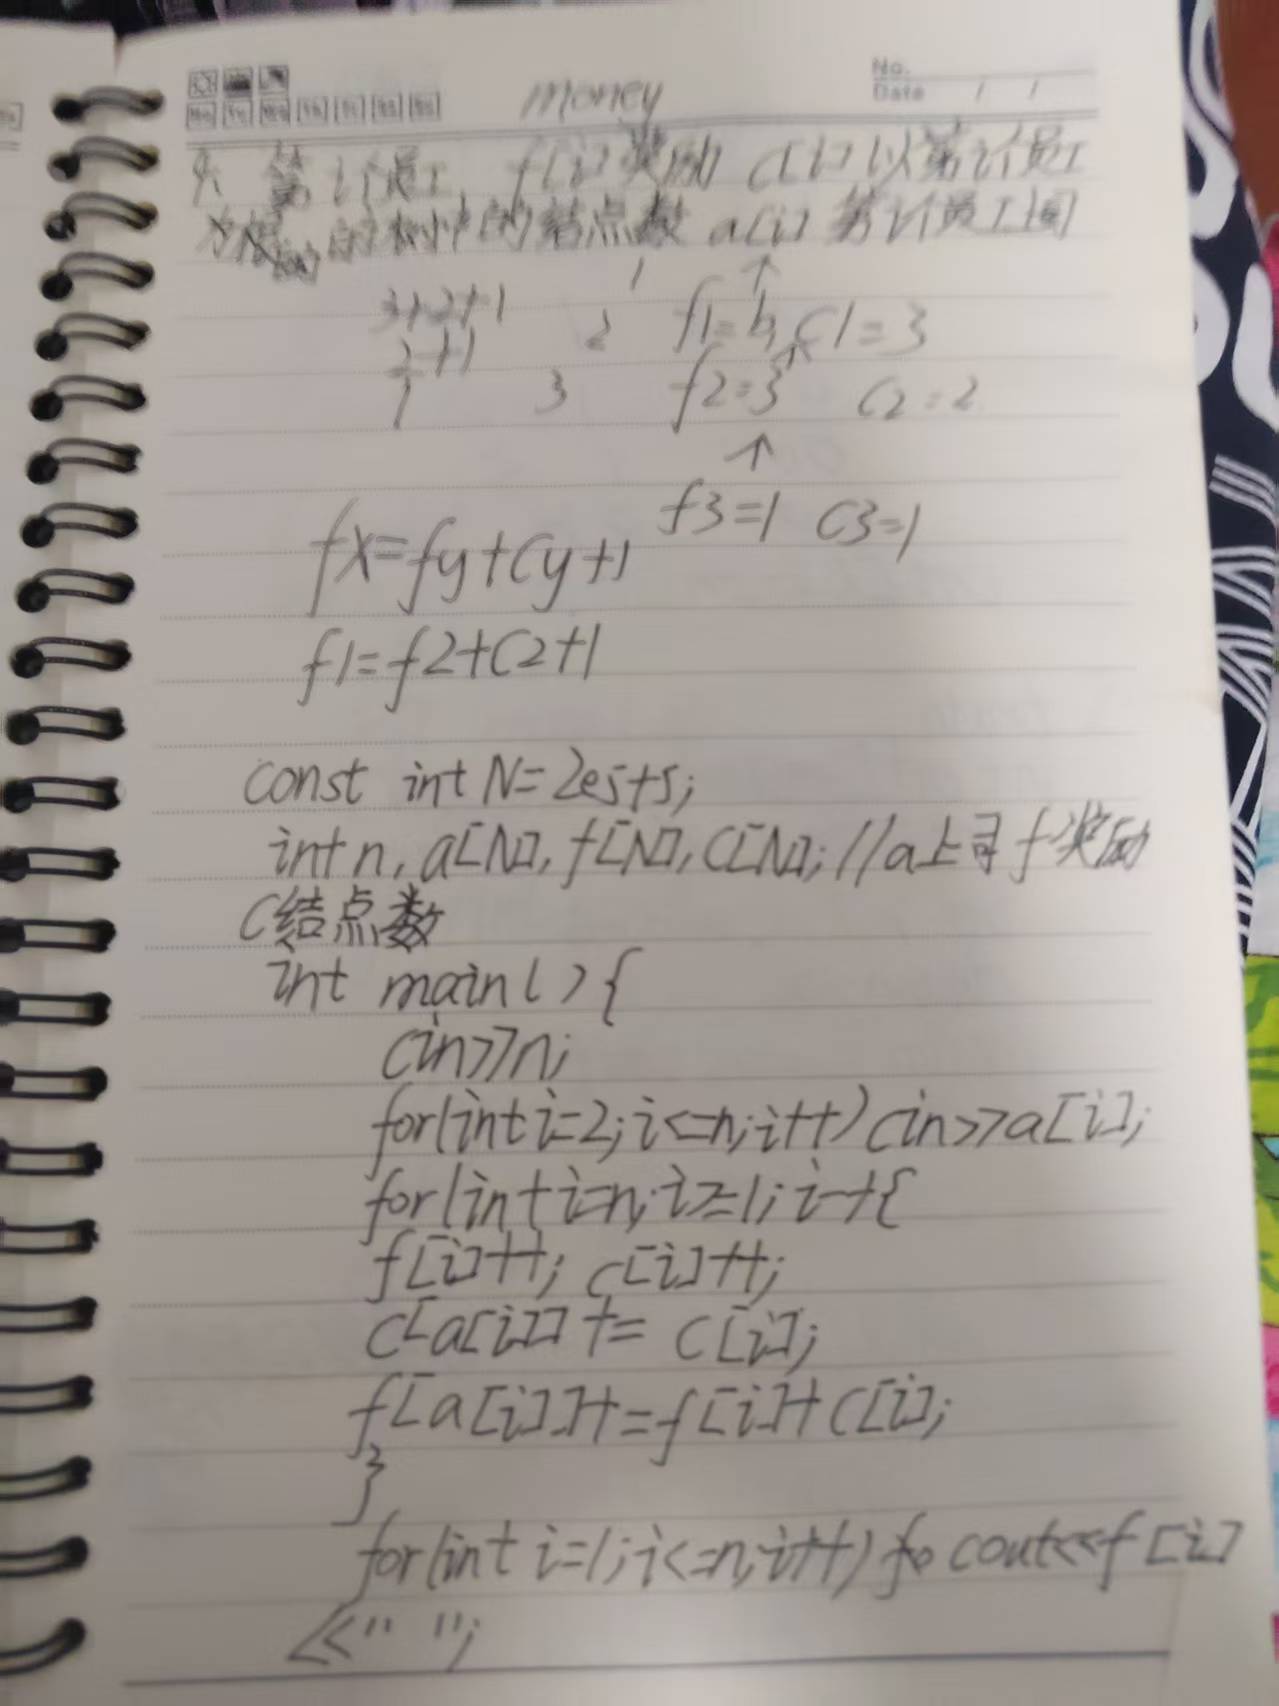 money
No.
Date / /
第i个员工 f[i]奖励 C[i]以第i个员工
为根的树中的结点数 a[i] 第i个员工
3+2+1 1
2+1 2 f1=6, C1=3
1 3 f2=3 C2=2
f3=1 C3=1
fx=fy+Cy+1
f1=f2+C2+1
const int N=2e5+5;
int n, a[N], f[N], C[N]; //a上司 f奖励
C结点数
int main(){
cin>>n;
for(int i=2;i<=n;i++)cin>>a[i];
for(int i=n;i>=1;i--){
f[i]++; c[i]++;
c[a[i]] += c[i];
f[a[i]]+=f[i]+c[i];
}
for(int i=1;i<=n;i++) cout<<f[i]
<<" ";